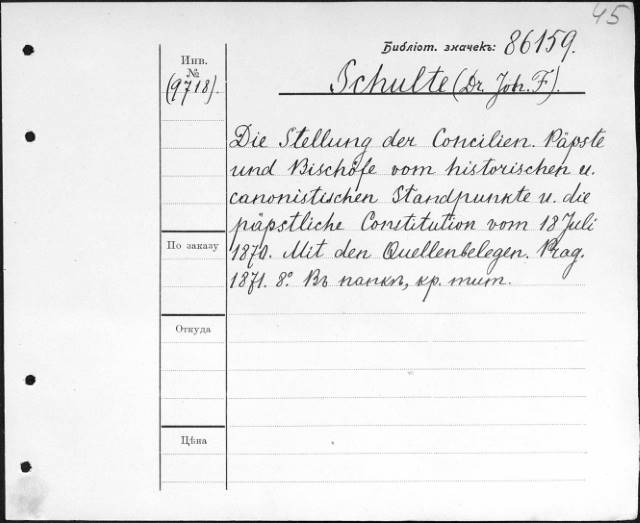 45
Библіот. значекъ: 86159.
Инв.
№
(9718).
Schulte (Dr. Joh. F.).
Die Stellung der Concilien. Päpste
und Bischöfe vom historischen u.
canonistischen Standpunkte u. die
päpstliche Constitution vom 18 Juli
1870. Mit den Quellenbelegen. Prag.
1871. 8º. Въ папкѣ, кр. тит.
По заказу
Откуда
Цѣна